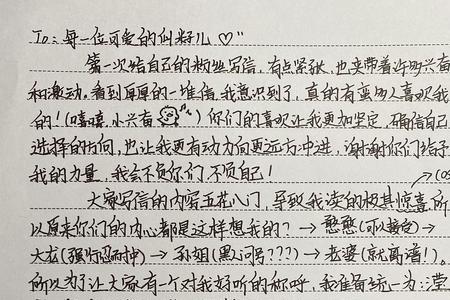 To：每一位可爱的仙籽儿♡"
第一次给自己的粉丝写信，有点紧张，也夹带着许多兴奋
和激动。看到厚厚的一堆信，我意识到了，真的有蛮多人喜欢我
的！(嘻嘻，小兴奋) 你们的喜欢让我更加坚定，确信自己
选择的方向，也让我更有动力向更远方冲进，谢谢你们给予
我的力量，我会不负你们，不负自己！
大家写信的内容五花八门，导致我读的极其惊喜 所
以原来你们的内心都是这样想我的？→憨憨(可以接受)→
大龙(强行忍耐中)→孙姐(黑人问号???)→老婆(就离谱!)。
所以为了让大家有一个对我好听的称呼，我准备统一为：滢